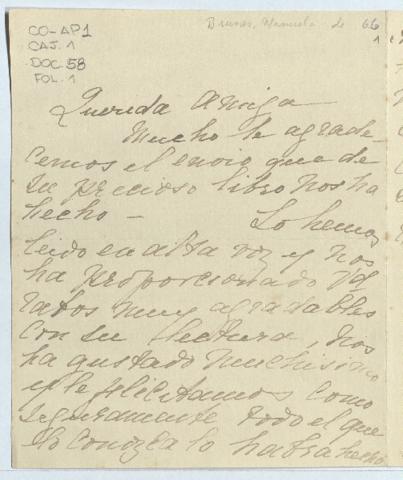 CO-AP1
CAJ. 1
DOC. 58
FOL. 1
Manuela de 66
1
Querida amiga
Mucho le agrade-
cemos el envio que de
su precioso libro nos ha
hecho - Lo hemos
leido en alta voz y nos
ha proporcionado
ratos muy agradables
con su lectura, nos
ha gustado muchisimo
y le felicitamos como
seguramente todo el que
lo conozca lo habra hecho